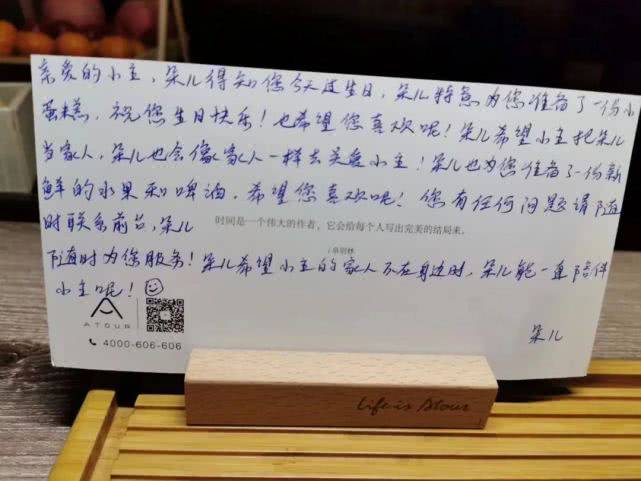 亲爱的小主，朵儿得知您今天过生日，朵儿特意为您准备了一份小
蛋糕，祝您生日快乐！也希望您喜欢呢！朵儿希望小主把朵儿
当家人，朵儿也会像家人一样去关爱小主！朵儿也为您准备了一份新
鲜的水果和啤酒，希望您喜欢呢！您有任何问题请随
时联系前台，朵儿
时间是一个伟大的作者，它会给每个人写出完美的结局来。
卓别林
随时为您服务！朵儿希望小主的家人不在身边时，朵儿能一直陪伴
小主呢！
ATOUR
4000-606-606
朵儿
Life is Atour